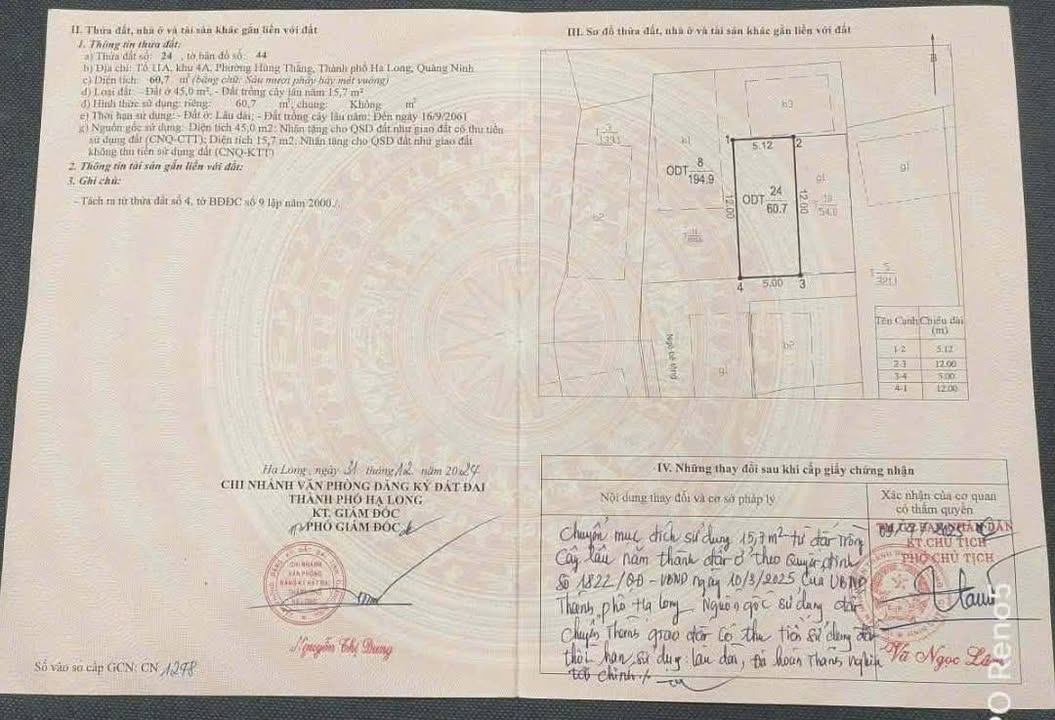 II. Thửa đất, nhà ở và tài sản khác gắn liền với đất
1. Thông tin thửa đất:
a) Thửa đất số: 24 , tờ bản đồ số: 44
b) Địa chỉ: Tổ 11A, khu 4A, Phường Hùng Thắng, Thành phố Hạ Long, Quảng Ninh
c) Diện tích: 60,7 m² (bằng chữ: Sáu mươi phẩy bảy mét vuông)
d) Loại đất: - Đất ở 45,0 m², - Đất trồng cây lâu năm 15,7 m²
đ) Hình thức sử dụng: riêng: 60,7 m², chung: Không m²
e) Thời hạn sử dụng: - Đất ở: Lâu dài; - Đất trồng cây lâu năm: Đến ngày 16/9/2061
g) Nguồn gốc sử dụng: Diện tích 45,0 m2: Nhận tặng cho QSD đất như giao đất có thu tiền
sử dụng đất (CNQ-CTT); Diện tích 15,7 m2: Nhận tặng cho QSD đất như giao đất
không thu tiền sử dụng đất (CNQ-KTT)
2. Thông tin tài sản gắn liền với đất:
3. Ghi chú:
- Tách ra từ thửa đất số 4, tờ BĐĐC số 9 lập năm 2000./.
Hạ Long, ngày 31 tháng 12 năm 2024
CHI NHÁNH VĂN PHÒNG ĐĂNG KÝ ĐẤT ĐAI
THÀNH PHỐ HẠ LONG
KT. GIÁM ĐỐC
PHÓ GIÁM ĐỐC
CHI NHÁNH
VĂN PHÒNG
ĐĂNG KÝ ĐẤT ĐAI
Nguyễn Thị Dung
Số vào sổ cấp GCN: CN 1278
III. Sơ đồ thửa đất, nhà ở và tài sản khác gắn liền với đất
B
b3
1
5.12
2
b1
ODT 8
194.9
12.00
ODT 24
60.7
12.00
g1
54.0
g1
b2
4
5.00
3
5
321.1
Ngõ bê tông
g1
b2
Tên Cạnh Chiều dài
(m)
1-2 5.12
2-3 12.00
3-4 5.00
4-1 12.00
IV. Những thay đổi sau khi cấp giấy chứng nhận
Nội dung thay đổi và cơ sở pháp lý
Xác nhận của cơ quan
có thẩm quyền
Chuyển mục đích sử dụng 15,7 m² từ đất trồng
cây lâu năm thành đất ở theo Quyết định
số 1822/QĐ-UBND ngày 10/3/2025 của UBND
Thành phố Hạ Long. Nguồn gốc sử dụng đất
chuyển thành giao đất có thu tiền sử dụng đất
thời hạn sử dụng: lâu dài, Đã hoàn thành nghĩa vụ
tài chính./.
KT.CHỦ TỊCH
PHÓ CHỦ TỊCH
Vũ Ngọc Lâm
O Reno5